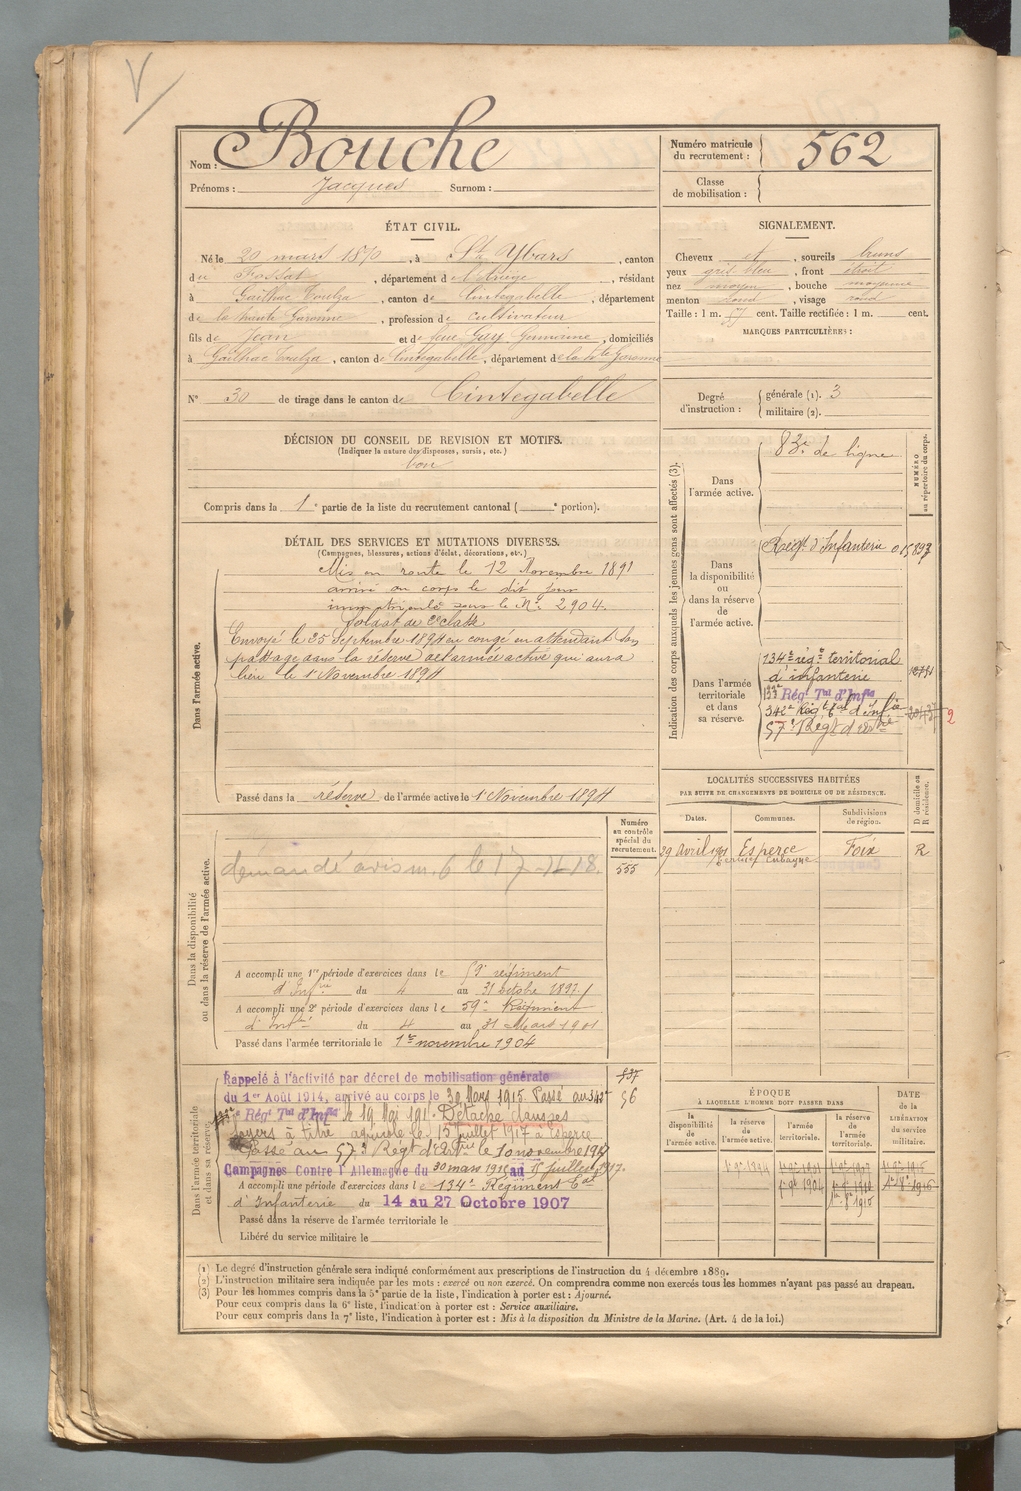 Nom : Bouche
Prénoms : Jacques Surnom :
Numéro matricule du recrutement : 562
Classe de mobilisation :
ÉTAT CIVIL.
Né le 20 mars 1870, à St Ybars, canton
du Fossat, département de l'Ariège, résidant
à Gailhac Toulza, canton de Cintegabelle, département
de la haute Garonne, profession de cultivateur
fils de Jean et de feue Gay Germaine, domiciliés
à Gailhac Toulza, canton de Cintegabelle, département de la Hte Garonne
N° 30 de tirage dans le canton de Cintegabelle
SIGNALEMENT.
Cheveux et, sourcils bruns
yeux gris bleu, front étroit
nez moyen, bouche moyenne
menton rond, visage rond
Taille : 1 m. 57 cent. Taille rectifiée : 1 m. cent.
MARQUES PARTICULIÈRES :
Degré d'instruction : générale (1). 3
militaire (2).
DÉCISION DU CONSEIL DE REVISION ET MOTIFS.
(Indiquer la nature des dispenses, sursis, etc.)
bon
Compris dans la 1e partie de la liste du recrutement cantonal ( e portion).
DÉTAIL DES SERVICES ET MUTATIONS DIVERSES.
(Campagnes, blessures, actions d'éclat, décorations, etc.)
Dans l'armée active.
Mis en route le 12 Novembre 1891
arrivé au corps le dit jour
immatriculé sous le N° 2904.
Soldat de 2e classe
Envoyé le 25 Septembre 1894 en congé en attendant son
passage dans la réserve de l'armée active qui aura
lieu le 1 Novembre 1894
Passé dans la réserve de l'armée active le 1 Novembre 1894
Indication des corps auxquels les jeunes gens sont affectés (3).
NUMÉRO au répertoire du corps.
Dans l'armée active.
83e de ligne
Dans la disponibilité ou dans la réserve de l'armée active.
Régt d'Infanterie 015897
Dans l'armée territoriale et dans sa réserve.
134e régt territorial
d'infanterie
133e Régt Tal d'Infie
342e Régt tal d'infie
57e Régt d'artie
2
LOCALITÉS SUCCESSIVES HABITÉES
PAR SUITE DE CHANGEMENTS DE DOMICILE OU DE RÉSIDENCE.
Dates. Communes. Subdivisions de région. D domicile ou R résidence.
29 avril 1901 Esperce Foix R
Dans la disponibilité ou dans la réserve de l'armée active.
Numéro au contrôle spécial du recrutement.
555
demandé avis m. 6 le 17-12-18.
A accompli une 1re période d'exercices dans le 59e régiment
d'Infie du 4 au 31 octobre 1897
A accompli une 2e période d'exercices dans le 59e Régiment
d'Infie du 4 au 31 Mars 1901
Passé dans l'armée territoriale le 1er novembre 1904
Dans l'armée territoriale et dans sa réserve.
Rappelé à l'activité par décret de mobilisation générale
du 1er Août 1914, arrivé au corps le 30 Mars 1915. Passé au 342e
Régt Tal d'Infie le 19 Mai 191 . Détaché dans ses
foyers à titre agricole le 15 juillet 1917 à Esperce
Passé au 57e Régt d'Artie le 10 novembre 1917
Campagnes Contre l'Allemagne du 30 mars 1915 au 15 juillet 1917.
A accompli une période d'exercices dans le 134e Régiment tal
d'Infanterie du 14 au 27 Octobre 1907
Passé dans la réserve de l'armée territoriale le
Libéré du service militaire le
537
56
ÉPOQUE
À LAQUELLE L'HOMME DOIT PASSER DANS
la disponibilité de l'armée active. la réserve de l'armée active. l'armée territoriale. la réserve de l'armée territoriale.
DATE de la LIBÉRATION du service militaire.
1 9bre 1894
1 9bre 1904
(1) Le degré d'instruction générale sera indiqué conformément aux prescriptions de l'instruction du 4 décembre 1889.
(2) L'instruction militaire sera indiquée par les mots : exercé ou non exercé. On comprendra comme non exercés tous les hommes n'ayant pas passé au drapeau.
(3) Pour les hommes compris dans la 5e partie de la liste, l'indication à porter est : Ajourné.
Pour ceux compris dans la 6e liste, l'indication à porter est : Service auxiliaire.
Pour ceux compris dans la 7e liste, l'indication à porter est : Mis à la disposition du Ministre de la Marine. (Art. 4 de la loi.)